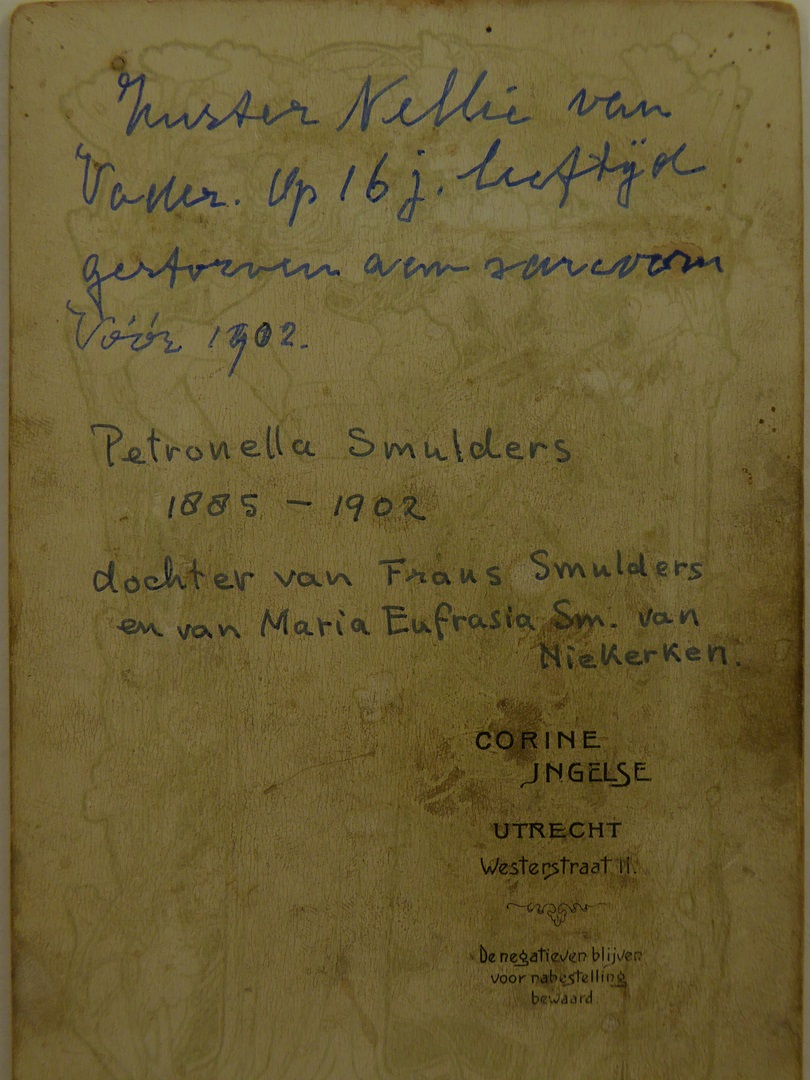 Zuster Nellie van
Vader. Op 16 j. leeftijd
gestorven aan sarcoom
Vóór 1902.
Petronella Smulders
1885 – 1902
dochter van Frans Smulders
en van Maria Eufrasia Sm. van
Niekerken.
CORINE
INGELSE
UTRECHT
Westerstraat 11.
De negatieven blijven
voor nabestelling
bewaard